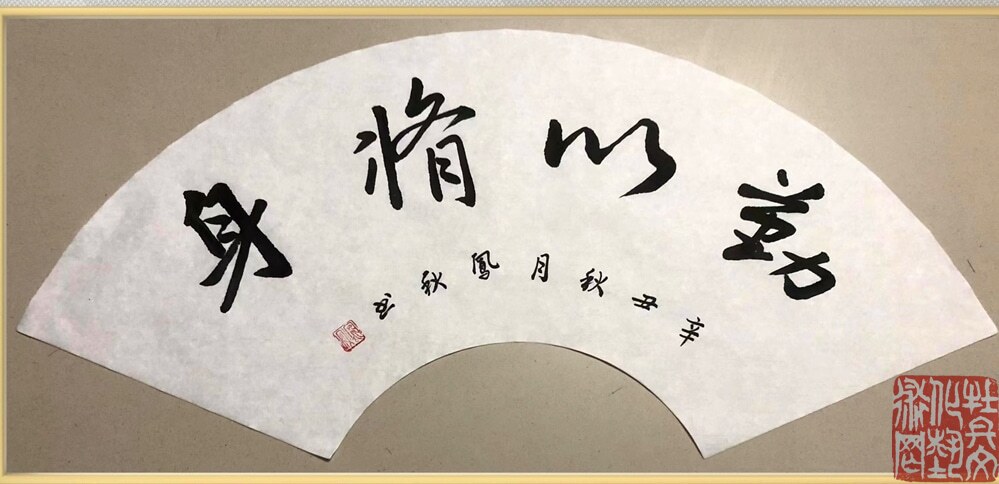 勤以脩身
辛丑秋月鳳秋书